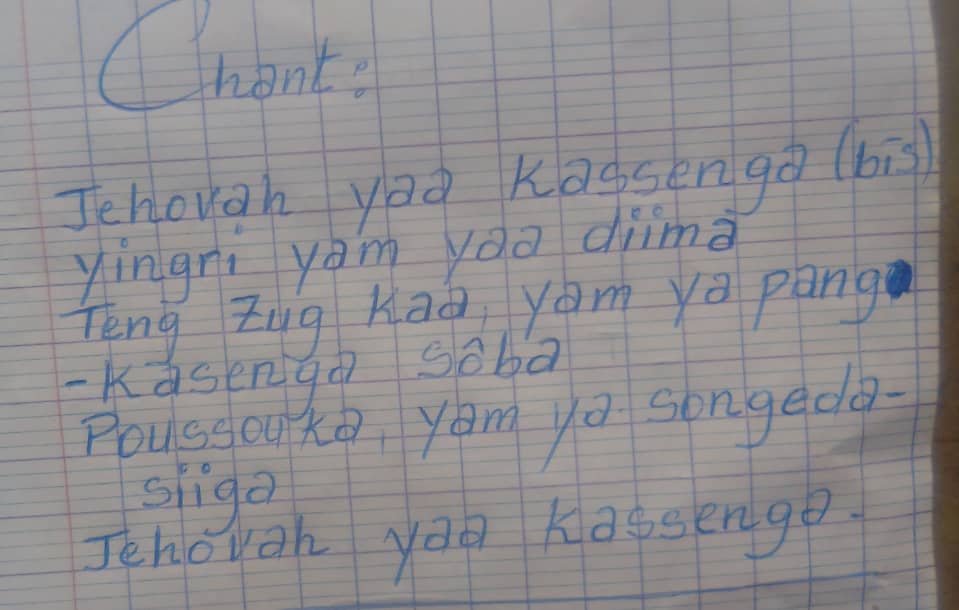 Chant:
Jehovah yaa Kassenga (bis)
yingri yam yaa diima
Teng Zug Kaa, yam ya pang
-Kasenga sôba
Poussouka, yam ya songeda-
siiga
Jehovah yaa Kassenga.